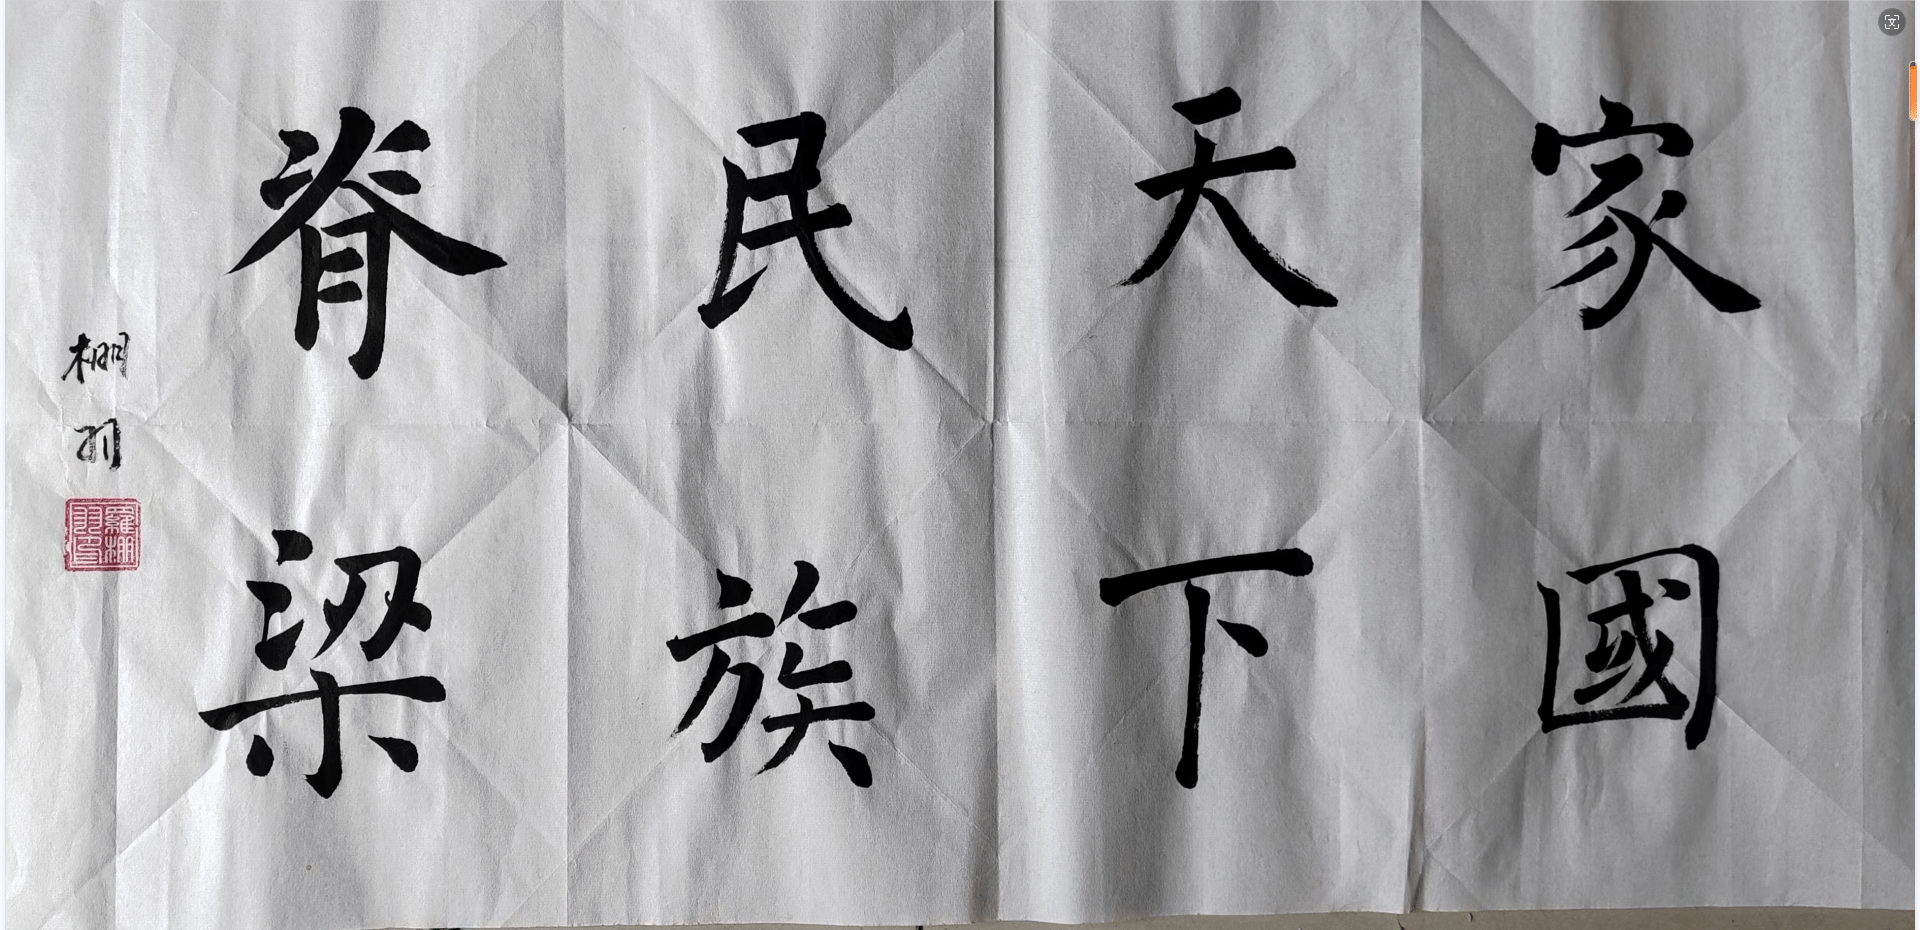 家國
天下
民族
脊梁
棚羽
羅棚羽印